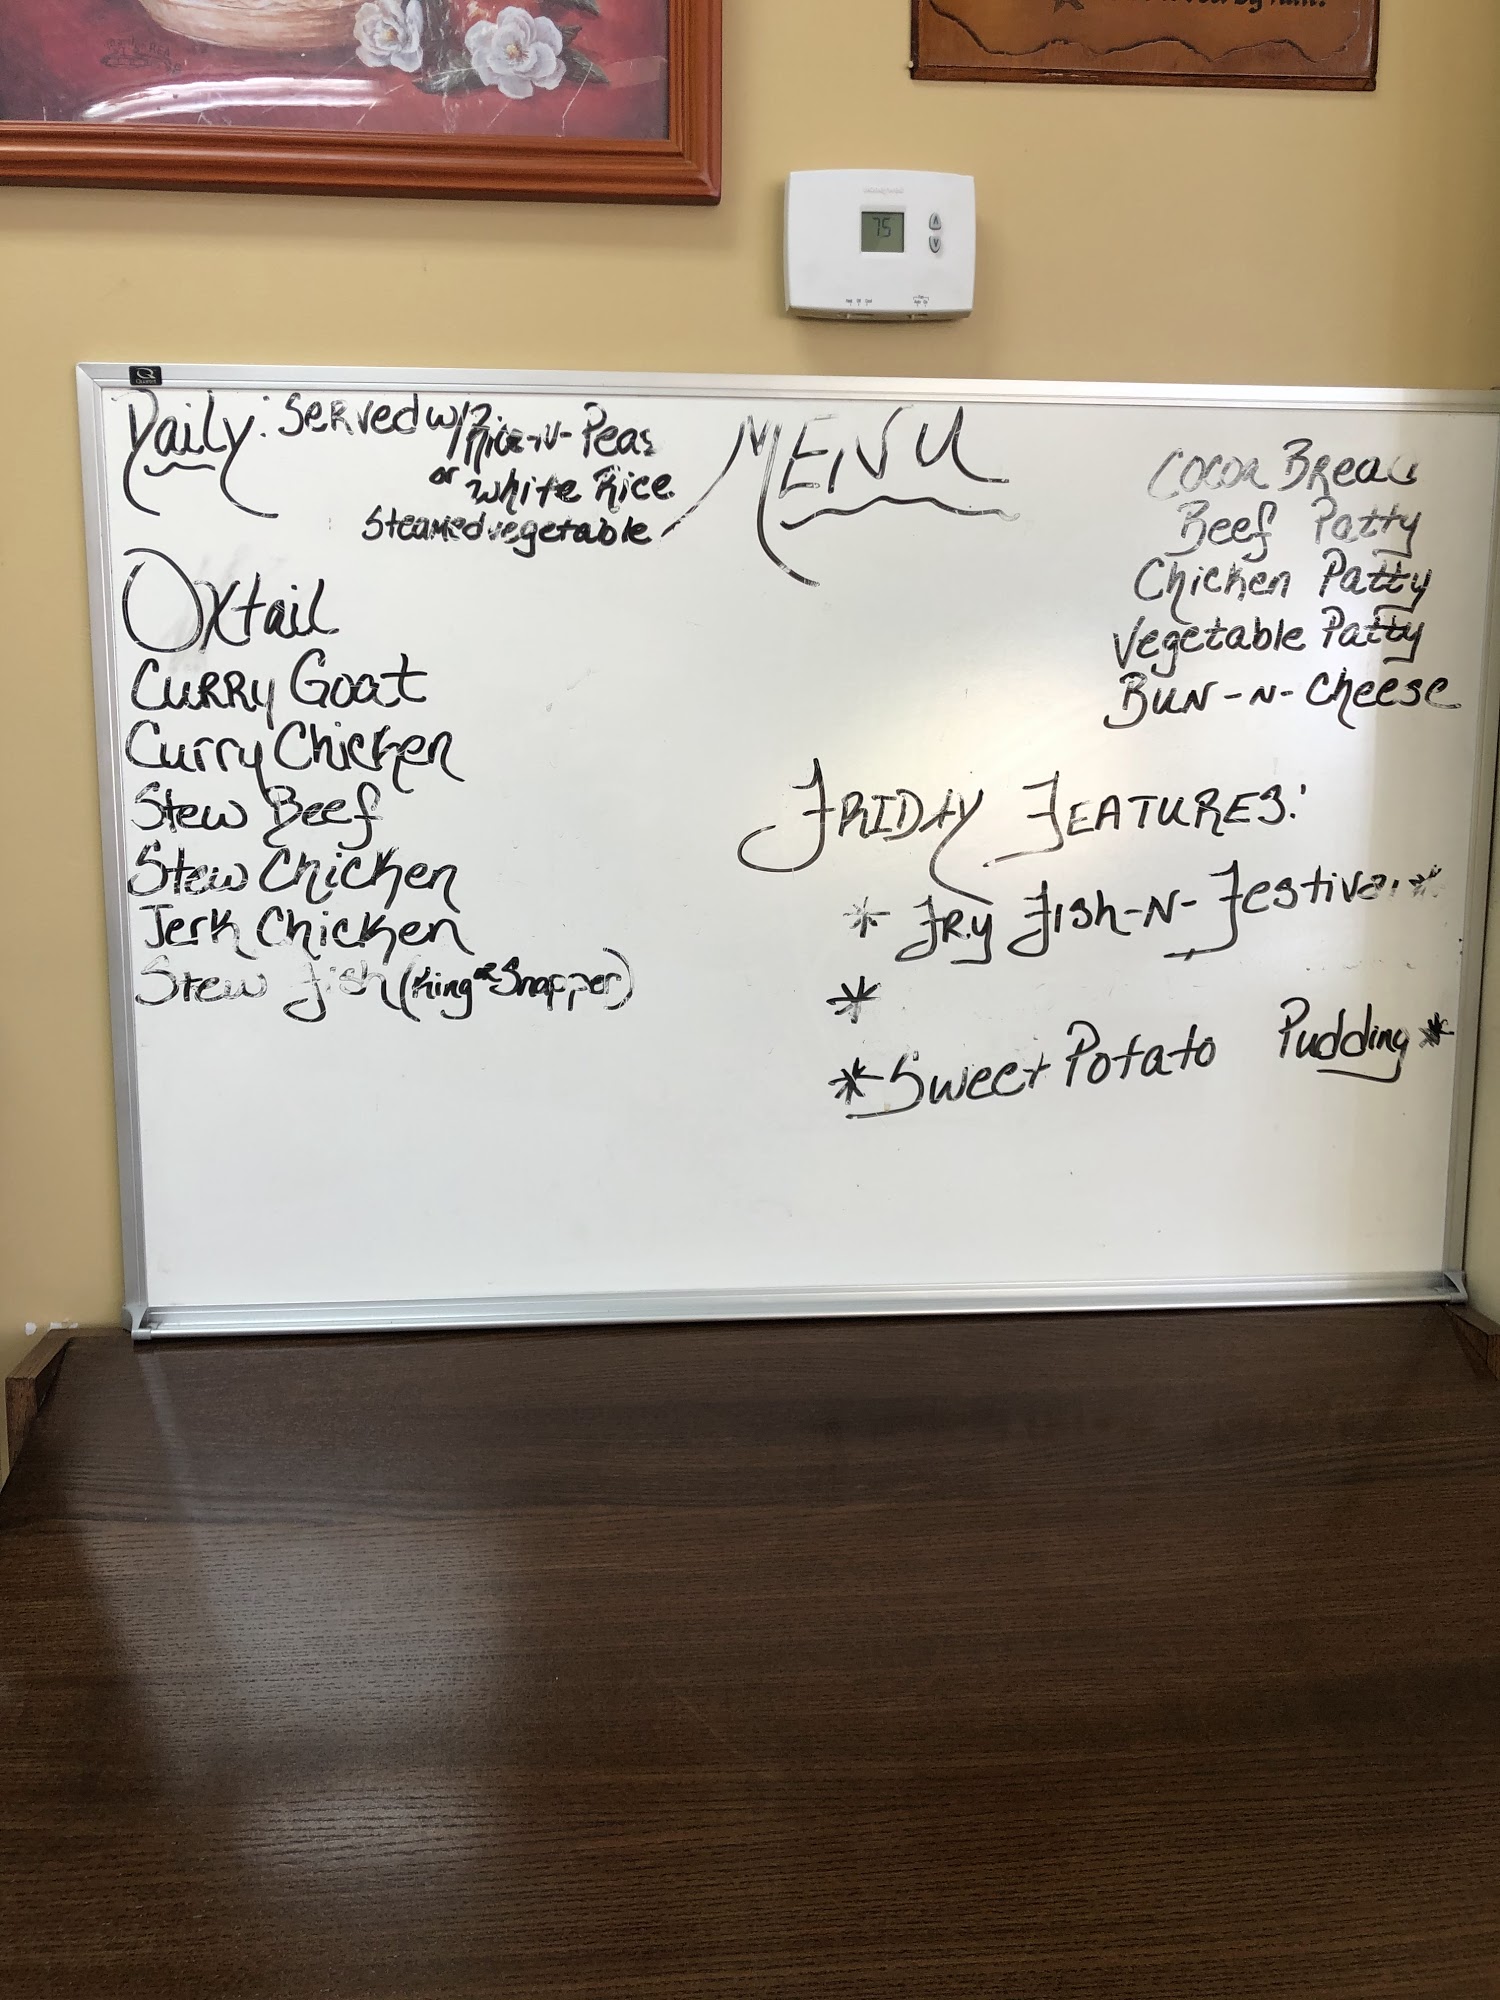 Honeywell
75
Quartet
MENU
Daily: Served w/ Rice-N-Peas
or White Rice
Steamed vegetable
Oxtail
Curry Goat
Curry Chicken
Stew Beef
Stew Chicken
Jerk Chicken
Stew Fish (King or Snapper)
Cocoa Bread
Beef Patty
Chicken Patty
Vegetable Patty
Bun-N-Cheese
FRIDAY FEATURES:
* Fry Fish-N-Festival *
*
* Sweet Potato Pudding *